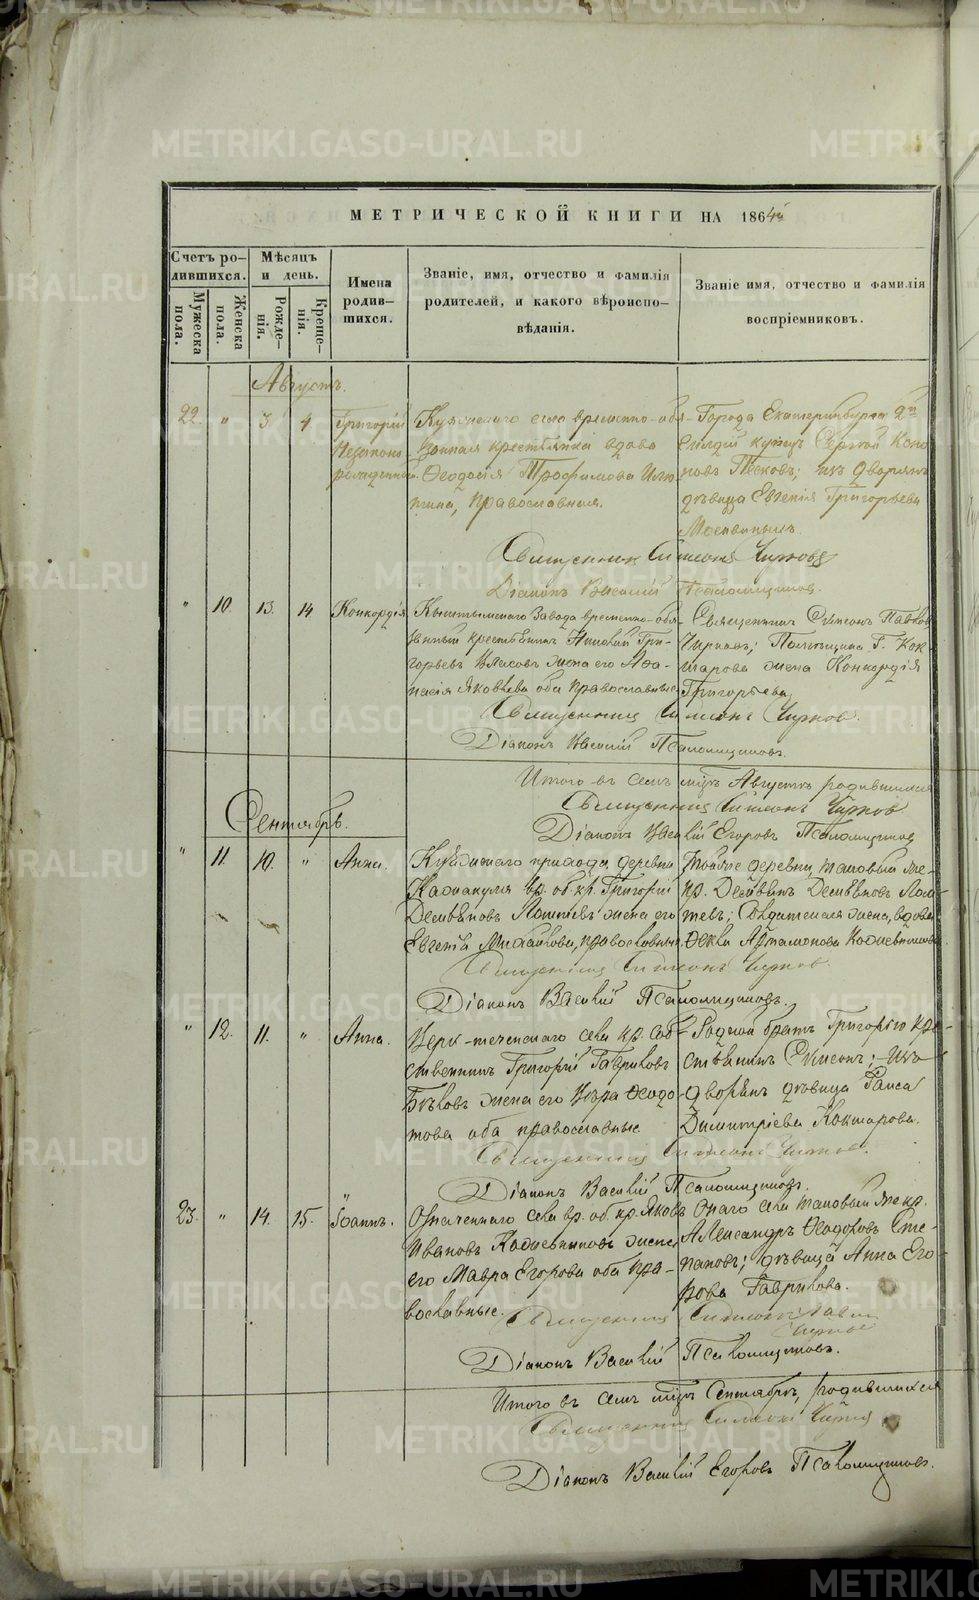 МЕТРИЧЕСКОЙ КНИГИ НА 1864й
Счетъ ро-
дившихся.
Мужеска
пола.
Женска
пола.
Мѣсяцъ
и день.
Рожде-
нія.
Креще-
нія.
Имена
родив-
шихся.
Званіе, имя, отчество и фамилія
родителей, и какого вѣроиспо-
вѣданія.
Званіе имя, отчество и фамилія
воспріемниковъ.
Августъ.
22. " 3 4 Григорій
Незаконно
рожденный
села временно-обя-
занная крестьянка вдова
Ѳеодосія Трофимова
Православная.
Города Екатеринбурга 2й
гилдіи купецъ Сергей
Песковъ; изъ Дворянъ
дѣвица Евгенія Григорьева
Священникъ Симеонъ Чирковъ
Діаконъ Василій Псаломщиковъ.
" 10. 13. 14 Конкордія
Кыштымскаго Завода временно-обя-
занный крестьянинъ Гри-
горьевъ Власовъ жена его Аѳа-
насія Яковлева оба православные
Священникъ Симеонъ Павловъ
Чирковъ; Г. Кок-
шарова жена Конкордія
Григорьева
Священникъ Симеонъ Чирковъ.
Діаконъ Василій Псаломщиковъ.
Итого въ семъ мцѣ Августѣ родившихся
Священникъ Симеонъ Чирковъ
Діаконъ Василій Егоровъ Псаломщиковъ
Сентябрь.
" 11. 10. " Анна.
прихода деревни
вр. об. кр. Григорій
Дементьевъ жена его
Евгенія Михайлова, православные
деревни, таковый же
кр.
вдова
Ѳекла Артамонова Кожевникова
Священникъ Симеонъ Чирковъ.
Діаконъ Василій Псаломщиковъ.
" 12. 11. " Анна.
Верх-теченскаго села кр. соб-
ственникъ Григорій Гавриловъ
жена его Вѣра Ѳедо-
това оба православные
Родной братъ Григорію кре-
стьянинъ Симеонъ; Изъ
Дворянъ дѣвица Раиса
Димитріева Кокшарова.
Священникъ Симеонъ Чирковъ.
Діаконъ Василій Псаломщиковъ.
23. " 14. 15. Іоаннъ.
Означеннаго села вр. об. кр. Яковъ
Ивановъ Кожевниковъ жена
его Мавра Егорова оба пра-
вославные.
Онаго села таковый же кр.
Александръ Ѳеодоровъ Сте-
пановъ; дѣвица Анна Его-
рова Гаврилова.
Священникъ Симеонъ Павловъ
Чирковъ
Діаконъ Василій Псаломщиковъ.
Итого въ семъ мцѣ Сентябрѣ, родившихся
Священникъ Симеонъ Чирковъ
Діаконъ Василій Егоровъ Псаломщиковъ.
METRIKI.GASO-URAL.RU